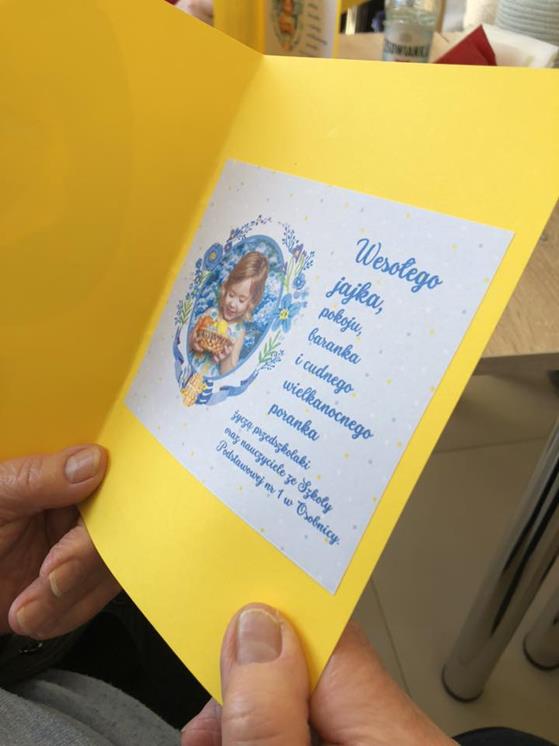 Wesołego
jajka,
pokoju,
baranka
i cudnego
wielkanocnego
poranka
życzą przedszkolaki
oraz nauczyciele ze Szkoły
Podstawowej nr 1 w Osobnicy.